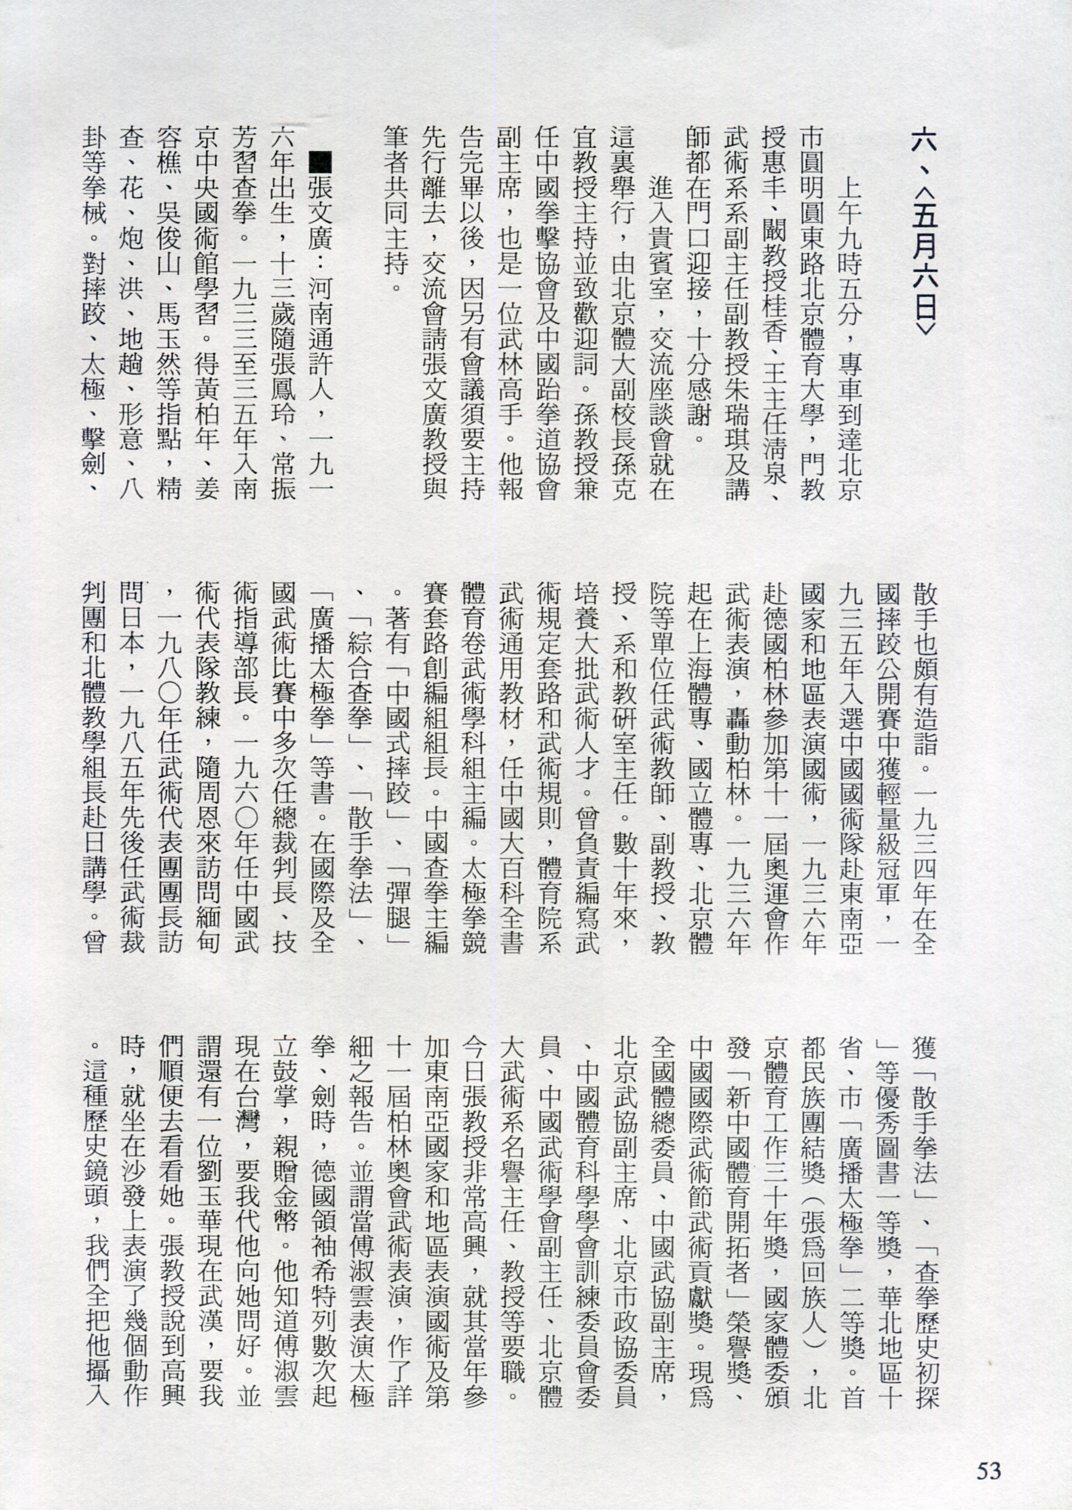 六、〈五月六日〉
上午九時五分，專車到達北京
市圓明圓東路北京體育大學，門教
授惠丰、闞教授桂香、王主任淸泉、
武術系系副主任副教授朱瑞琪及講
師都在門口迎接，十分感謝。
進入貴賓室，交流座談會就在
這裏舉行，由北京體大副校長孫克
宜教授主持並致歡迎詞。孫教授兼
任中國拳擊協會及中國跆拳道協會
副主席，也是一位武林高手。他報
告完畢以後，因另有會議須要主持
先行離去，交流會請張文廣教授與
筆者共同主持。
■張文廣：河南通許人，一九一
六年出生，十三歲隨張鳳玲、常振
芳習查拳。一九三三至三五年入南
京中央國術館學習。得黃柏年、姜
容樵、吳俊山、馬玉然等指點，精
查、花、炮、洪、地趟、形意、八
卦等拳械。對摔跤、太極、擊劍、
散手也頗有造詣。一九三四年在全
國摔跤公開賽中獲輕量級冠軍，一
九三五年入選中國國術隊赴東南亞
國家和地區表演國術，一九三六年
赴德國柏林參加第十一屆奧運會作
武術表演，轟動柏林。一九三六年
起在上海體專、國立體專、北京體
院等單位任武術教師、副教授、教
授、系和教研室主任。數十年來，
培養大批武術人才。曾負責編寫武
術規定套路和武術規則，體育院系
武術通用教材，任中國大百科全書
體育卷武術學科組主編。太極拳競
賽套路創編組組長。中國查拳主編
。著有「中國式摔跤」、「彈腿」
、「綜合查拳」、「散手拳法」、
「廣播太極拳」等書。在國際及全
國武術比賽中多次任總裁判長、技
術指導部長。一九六〇年任中國武
術代表隊教練，隨周恩來訪問緬甸
，一九八〇年任武術代表團團長訪
問日本，一九八五年先後任武術裁
判團和北體教學組長赴日講學。曾
獲「散手拳法」、「查拳歷史初探
」等優秀圖書一等獎，華北地區十
省、市「廣播太極拳」二等獎。首
都民族團結獎（張爲回族人），北
京體育工作三十年獎，國家體委頒
發「新中國體育開拓者」榮譽獎、
中國國際武術節武術貢獻獎。現爲
全國體總委員、中國武協副主席，
北京武協副主席、北京市政協委員
、中國體育科學學會訓練委員會委
員、中國武術學會副主任、北京體
大武術系名譽主任、教授等要職。
今日張教授非常高興，就其當年參
加東南亞國家和地區表演國術及第
十一屆柏林奧會武術表演，作了詳
細之報告。並謂當傅淑雲表演太極
拳、劍時，德國領袖希特列數次起
立鼓掌，親贈金幣。他知道傅淑雲
現在台灣，要我代他向她問好。並
謂還有一位劉玉華現在武漢，要我
們順便去看看她。張教授說到高興
時，就坐在沙發上表演了幾個動作
。這種歷史鏡頭，我們全把他攝入
53